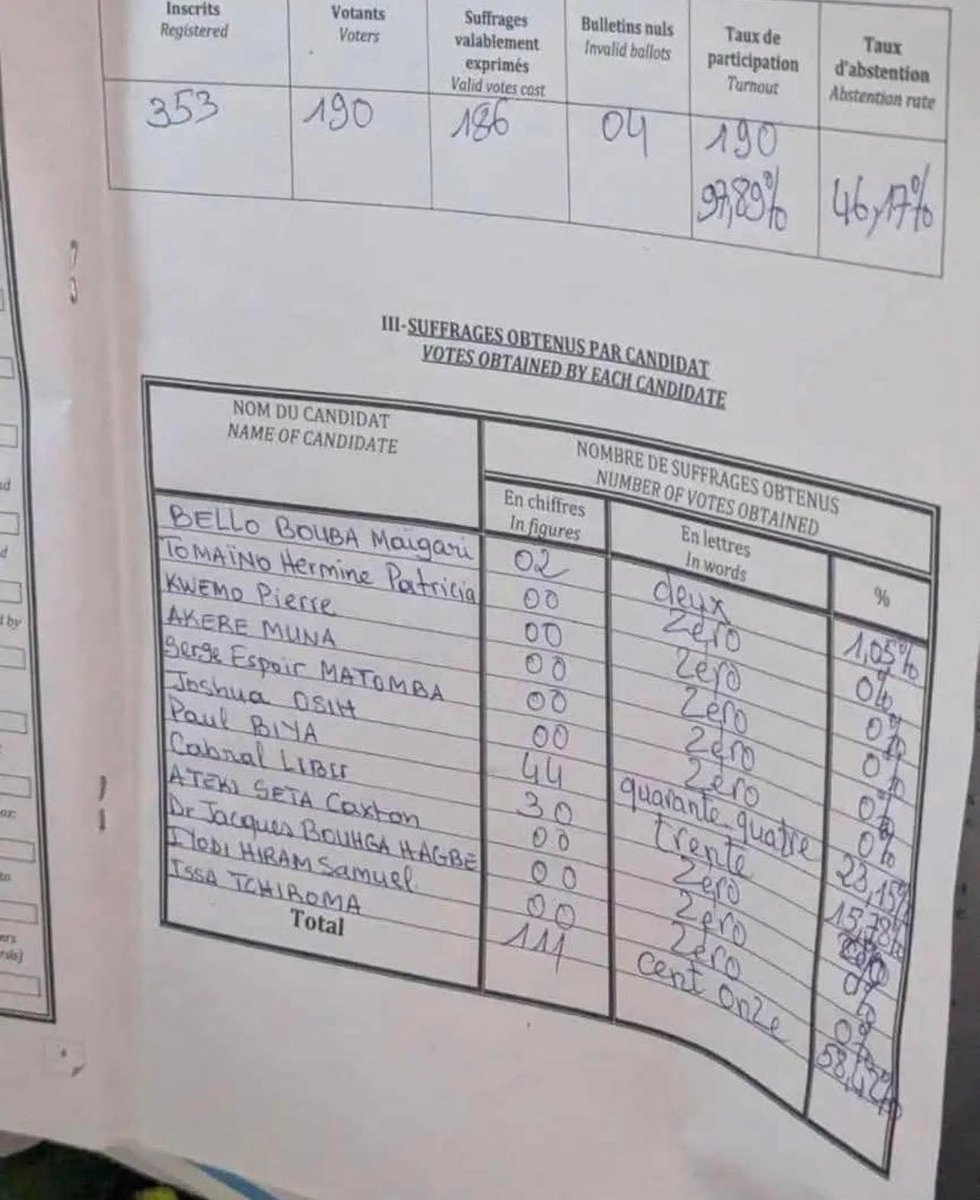 Inscrits
Registered
Votants
Voters
Suffrages
valablement
exprimés
Valid votes cast
Bulletins nuls
Invalid ballots
Taux de
participation
Turnout
Taux
d'abstention
Abstention rate
353
190
186
04
190
97,89%
46,17%
III-SUFFRAGES OBTENUS PAR CANDIDAT
VOTES OBTAINED BY EACH CANDIDATE
NOM DU CANDIDAT
NAME OF CANDIDATE
NOMBRE DE SUFFRAGES OBTENUS
NUMBER OF VOTES OBTAINED
En chiffres
In figures
En lettres
In words
%
BELLO BOUBA Maïgari 02 deux 1,05%
TOMAÏNO Hermine Patricia 00 Zéro 0%
KWEMO Pierre 00 Zéro 0%
AKERE MUNA 00 Zéro 0%
Serge Espoir MATOMBA 00 Zéro 0%
Joshua OSIH 00 Zéro 0%
Paul BIYA 44 quarante quatre 23,15%
Cabral LIBII 30 trente 15,78%
ATEKI SETA Caxton 00 Zéro
Dr Jacques BOUHGA HAGBE 00 Zéro 0%
IYODI HIRAM Samuel 00 Zéro 0%
ISSA TCHIROMA 111 cent onze 58,42%
Total